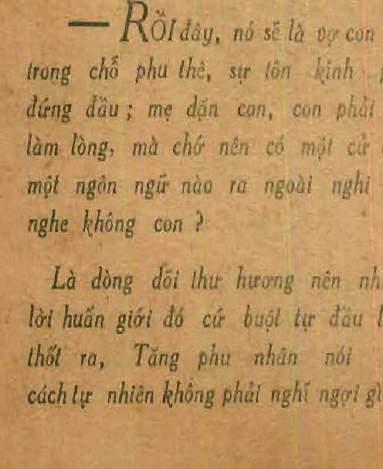 — RỒI đây, nó sẽ là vợ con
trong chỗ phu thê, sự tôn kính
đứng đầu ; mẹ dặn con, con phải
làm lòng, mà chớ nên có một cử
một ngôn ngữ nào ra ngoài nghi
nghe không con ?
Là dòng dõi thư hương nên nh
lời huấn giới đó cứ buột tự đầu l
thốt ra, Tăng phu nhân nói
cách tự nhiên không phải nghĩ ngợi gì